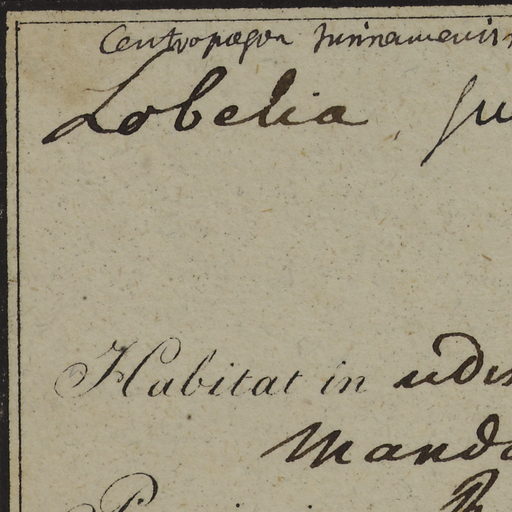 Centropogon surinamensis
Lobelia su
Habitat in udis
Mando